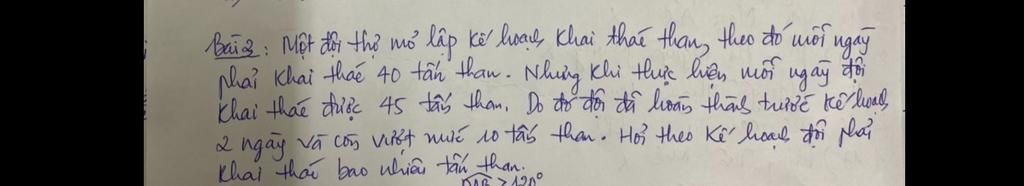 Bài 2: Một đội thợ mỏ lập kế hoạch khai thác than, theo đó mỗi ngày
phải khai thác 40 tấn than. Nhưng khi thực hiện mỗi ngày đội
khai thác được 45 tấn than. Do đó đội đã hoàn thành trước kế hoạch
2 ngày và còn vượt mức 10 tấn than. Hỏi theo kế hoạch đội phải
khai thác bao nhiêu tấn than.
120°